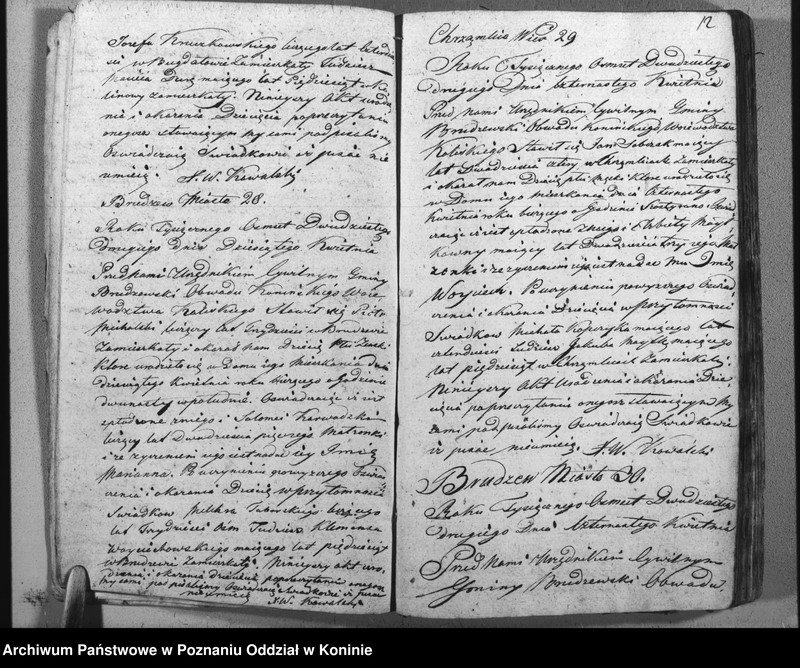 Józefa Kruczkowskiego liczącego lat
w Bogdałowie Zamieszkały tudzież
mającego lat Pięćdziesiąt
Zamieszkały. Niniejszy Akt urodze
nia i okazania Dziecięcia po przeczytaniu
onegoż stawającym My sami podpisaliśmy
Oświadczają Świadkowie iż pisać nie
umieją. J. W. Kowalski
Brudzew Miasto 28.
Roku Tysiącznego Osmset Dwudziestego
drugiego dnia Dziesiątego Kwietnia
Przed Nami Urzędnikiem Cywilnym Gminy
Brudzewski Obwodu Konińskiego Woie
wodztwa Kaliskiego Stawił się Piotr
Michalski liczący lat Trzydzieści w Brudzewie
Zamieszkały i okazał nam dziecię Płci Żeński
które urodziło się w Domu iego Mieszkania dnia
Dziewiątego Kwietnia roku bieżącego o Godzinie
dwunasty w południe. Oswiadczaiąc iż iest
spłodzone z niego i Salomei Karwadzki
liczący lat Dwadzieścia pięcego Małżonki
i że życzeniem iego iest nadać iey Imię
Marianna. Po uczynieniu powyższego Oświad
czenia i okazania Dziecięcia w przytomności
Świadkow Melchra liczącego
lat Trzydzieści Ośm Tudzież Klemensa
Woyciechowskiego maiącego lat pięćdziesiąt
w Brudzewie Zamieszkałych. Niniejszy akt uro
dzenia i okazania dziecięcia po przeczytaniu onegoż
My sami podpisaliśmy Oświadczają Świadkowie iż pisać
nie umieją J. W. Kowalski
12
Chrząblice Wieś 29
Roku Tysiącznego Osmset Dwudziestego
drugiego Dnia Czternastego Kwietnia
Przed Nami Urzędnikiem Cywilnym Gminy
Brudzewski Obwodu Konińskiego Woiewodztwa
Kaliskiego Stawił się Jan maiący
lat Dwadzieścia cztery w Zamieszkały
i okazał nam Dziecię płci Męzki które urodziło się
w Domu iego mieszkania dnia Czternastego
Kwietnia roku bieżącego o Godzinie Oświad
czaiąc iż iest spłodzone z niego i Elżbiety
maiący lat Dwadzieścia trzy iego Mał
żonki i że życzeniem iego iest nadać mu Imię
Woyciech. Po uczynieniu powyższego Oświad
czenia i okazania Dziecięcia w przytomności
Świadkow Michała maiącego lat
czterdzieści Tudzież Jakuba maiącego
lat pięćdziesiąt w Zamieszkałych.
Niniejszy Akt Urodzenia i okazania Dzie
cięcia po przeczytaniu onegoż stawaiącym My
sami podpisaliśmy Oświadczają Świadkowie
iż pisać nieumieją. J. W. Kowalski
Brudzew Miasto 30.
Roku Tysiącznego Osmset Dwudziestego
drugiego Dnia Czternastego Kwietnia
Przed Nami Urzędnikiem Cywilnym
Gminy Brudzewski Obwodu
Archiwum Państwowe w Poznaniu Oddział w Koninie